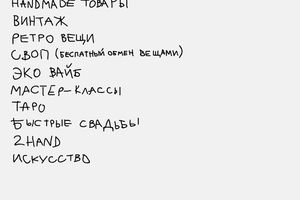 HANDMADE ТОВАРЫ
ВИНТАЖ
РЕТРО ВЕЩИ
СВОП (БЕСПЛАТНЫЙ ОБМЕН ВЕЩАМИ)
ЭКО ВАЙБ
МАСТЕР-КЛАССЫ
ТАРО
БЫСТРЫЕ СВАДЬБЫ
2HAND
ИСКУССТВО